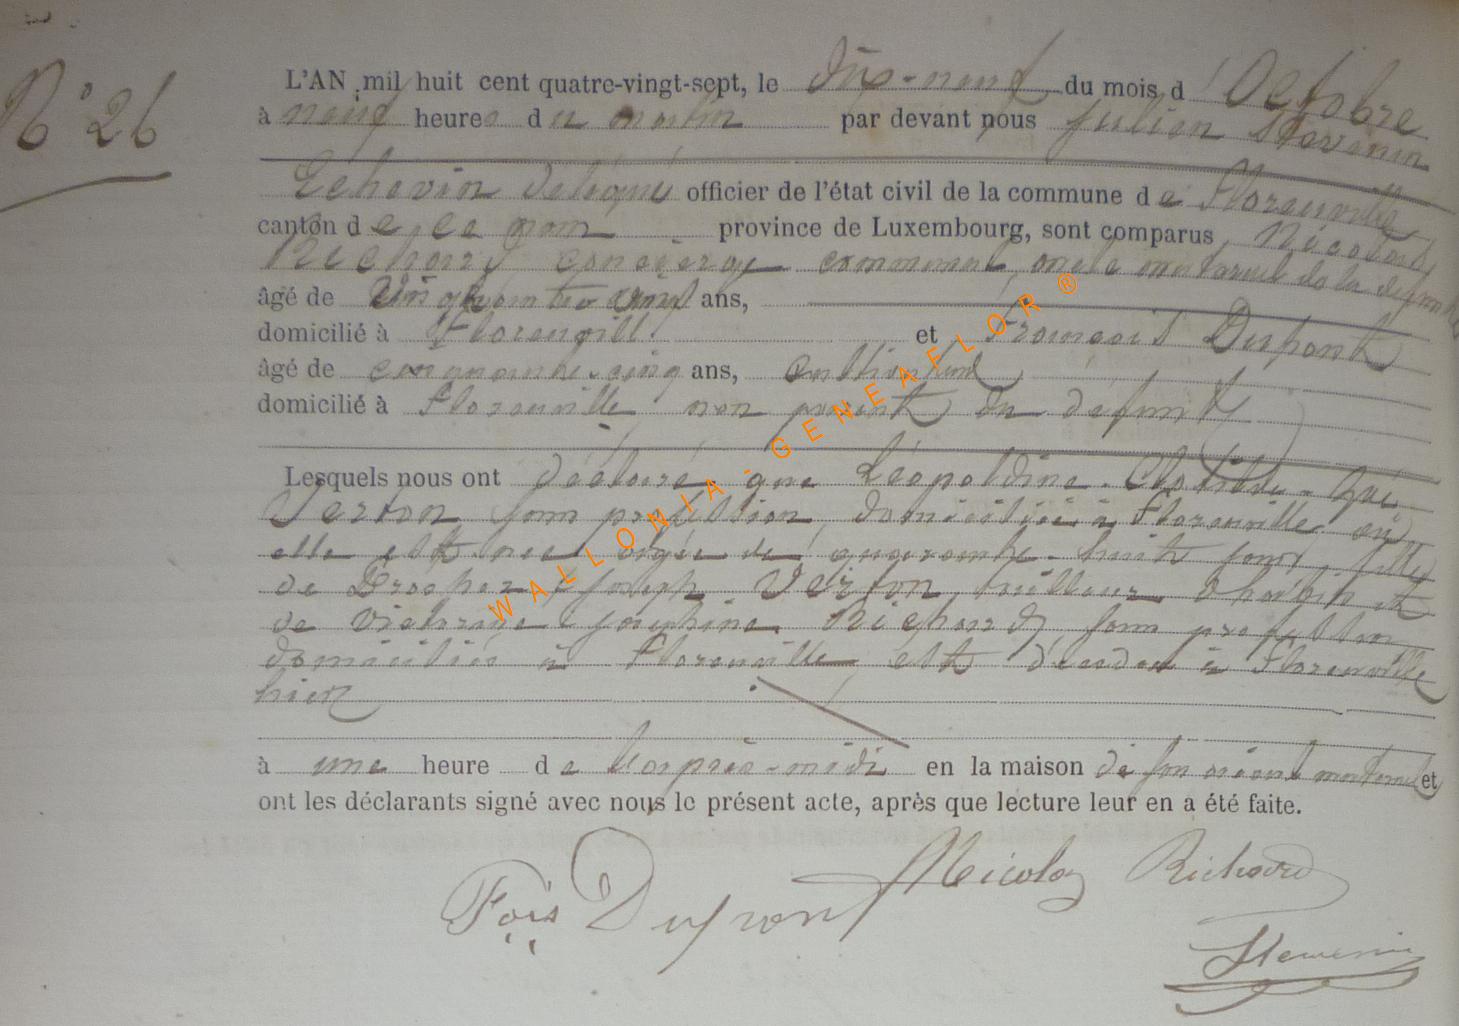 N° 26
L'AN mil huit cent quatre-vingt-sept, le dix-neuf du mois d'Octobre
à neuf heures du matin par devant nous Julien Stevenin
Echevin délégué officier de l'état civil de la commune de Florenville
canton de ce nom province de Luxembourg, sont comparus Nicolas
Richard concierge communal, oncle maternel de la défunte
âgé de ans,
domicilié à Florenville et François Dupont
âgé de cinquante-cinq ans, cultivateur
domicilié à Florenville non parent du défunt
Lesquels nous ont déclaré que Léopoldine
Verton, sans profession, domiciliée à Florenville où
elle est née, âgée de quarante-huit jours, fille
de Prosper Joseph Verton, tailleur d'habits et
de Victorine Joséphine Richard, sans profession
domiciliés à Florenville est décédée à Florenville
hier
à une heure de l'après-midi en la maison de son maternel et
ont les déclarants signé avec nous le présent acte, après que lecture leur en a été faite.
Fois Dupont Nicolas Richard
Stevenin
WALLONIA - GENEAFLOR ®